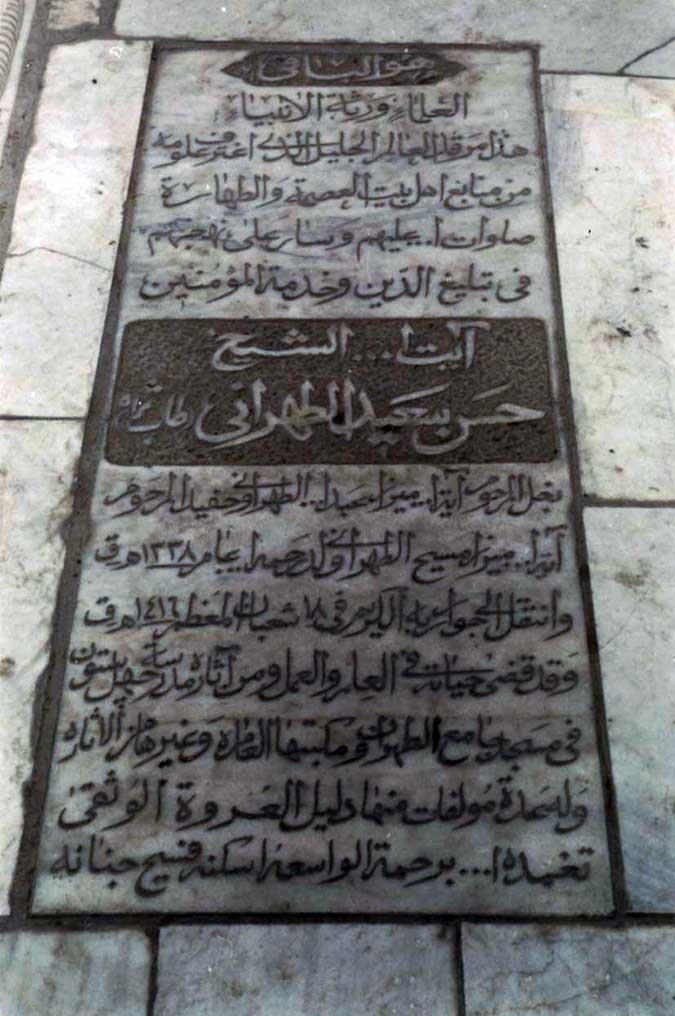 هو الباقي
العلماء ورثة الانبياء
هذا مرقد العالم الجليل الذي اغترف علومه
من منابع اهل بيت العصمة والطهارة
صلوات ا... عليهم وسار على نهجهم
في تبليغ الدين وخدمة المؤمنين
آيت ا... الشيخ
حسن سعيد الطهراني (طاب ثراه)
نجل المرحوم آية ا... ميرزا عبد ا... الطهراني وحفيد المرحوم
آية ا... ميرزا مسيح الطهراني ولد رحمه ا... عام ١٣٣٨ ه‍ ق
وانتقل الى جوار ربه الكريم في ١٨ شعبان المعظم ١٤١٦ ه‍ ق
وقد قضى حياته في العلم والعمل ومن آثاره مدرسة چهل ستون
في مسجد جامع الطهران ومكتبتها العامة وغيرها من الآثار
وله عدة مؤلفات منها دليل العروة الوثقى
تغمده ا... برحمة الواسعة اسكنه فسيح جنانه